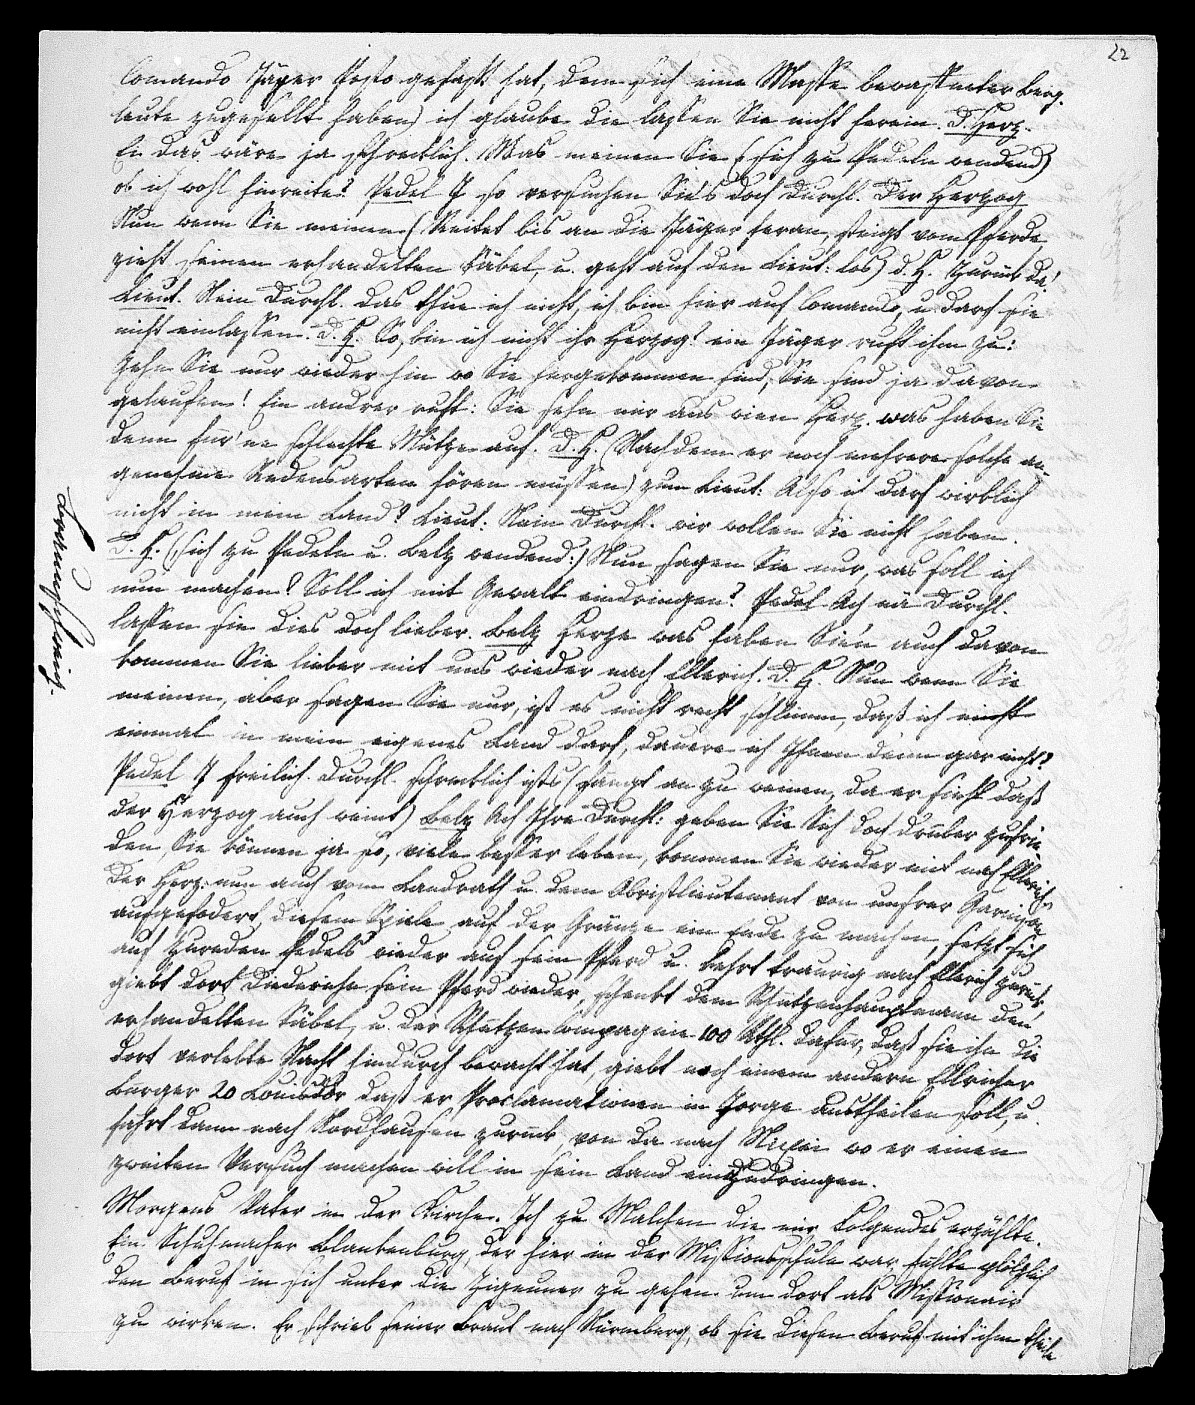 22
Comando Jäger Posto gefaßt hat, dem sich eine Masse bewaffneter Berg-
leute zugesellt haben) ich glaube die lassen Sie nicht herein. D. Herz.
Ei das wäre ja schrecklich. Was meinen Sie (sich zu Pedeln wendend)
ob ich wohl hinreite? Pedel J so versuchen Sie's doch Durchl. Der Herzog
Nun wenn Sie meinen (Reitet bis an die Jäger heran, steigt vom Pferde,
zieht seinen erhandelten Säbel, u. geht auf den Lieut: los) d. H. Zurück da!
Lieut. Nein Durchl. das thue ich nicht, ich bin hier auf Comando, u. darf sie
nicht einlassen. D. H. So, bin ich nicht ihr Herzog? ein Jäger ruft ihm zu:
Gehn Sie nur wieder hin wo Sie hergekommen sind, Sie sind ja davon
gelaufen! Ein andrer ruft: Sie sehn mir aus wien Herz. was haben Sie
denn für'ne schlechte Mütze auf. D. H. (Nachdem er noch mehrere solche an-
genehme Redensarten hören müssen) zum Lieut: Also ich darf wirklich
nicht in mein Land? Lieut: Nein Durchl. wir wollen Sie nicht haben.
D. H. (sich zu Pedeln u. Belz wendend:) Nun sagen Sie nur, was soll ich
nun machen? Soll ich mit Gewalt eindringen? Pedel Ach nä Durchl.
lassen sie dies doch lieber. Belz Herze was haben Sie'n auch davon
kommen Sie lieber mit uns wieder nach Ellrich. D. H. Nun wenn Sie
meinen, aber sagen Sie nur, ist es nicht recht schlimm, daß ich nicht
einmal in mein eigenes Land darf, dauere ich Ihnen denn gar nicht?
Pedel J freilich Durchl. schrecklich ists (fängt an zu weinen, da er sieht daß
der Herzog auch weint) Belz Ach Ihre Durchl: geben Sie Sich doch drüber zufrie-
den, Sie können ja so, viele besser leben, kommen Sie wieder mit nach Ellrich.
Der Herz: nun auch vom Landrath u. dem Obristlieutenant von unsrer Garnison
aufgefodert, diesem Spiele auf der Gränze ein Ende zu machen, setzt sich
auf Zureden Pedels wieder auf sein Pferd u. kehrt traurig nach Ellrich zurück,
giebt dort Diederichs sein Pferd wieder, schenkt dem Schützenhauptmann den
erhandelten Säbel, u. der Schützencompagnie 100 Rthl. dafür, daß sie ihn die
dort verlebte Nacht hindurch bewacht hat, giebt noch einem andern Ellricher
Bürger 20 Louisdor daß er Proclamationen in Zorge austheilen soll, u.
fährt dann nach Nordhausen zurück, von da nach wo er einen
zweiten Versuch machen will in sein Land einzudringen.
Morgens Vater in der Kirche. Ich zu Malchen die mir Folgendes erzählte.
Ein Schuhmacher Blankenburg, der hier in der Missionsschule war, fühlte plötzlich
den Beruf in sich unter die Zigeuner zu gehen um dort als Missionair
zu wirken. Er schrieb seiner Braut nach Nürnberg, ob sie diesen Beruf mit ihm theile
Braunschweig.